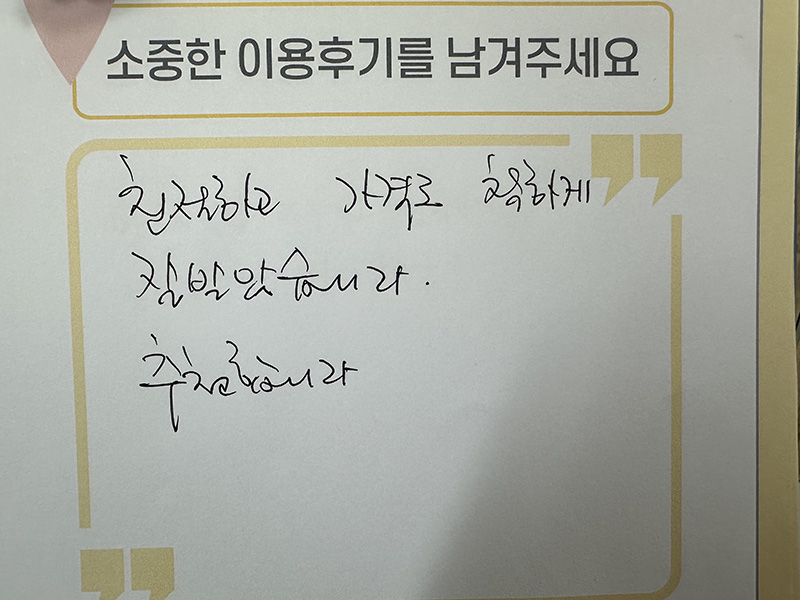 소중한 이용후기를 남겨주세요
친절하고 가격도 착하게
잘 받았습니다.
추천합니다